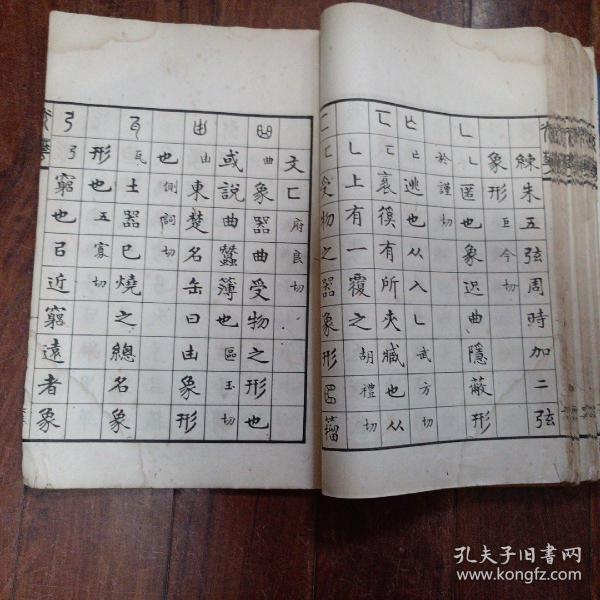 練朱五弦周時加二弦
象形巨今切
乚匿也象迟曲隱蔽形
於謹切
亾亾逃也从入乚武方切
匸匸衺徯有所夾臧也从
乚上有一覆之胡禮切
匚匚受物之器象形 籀
文匚府良切
曲象器曲受物之形也
或說曲蠶薄也區玉切
甾由東楚名缶曰由象形
也側詞切
瓦瓦土器已燒之總名象
形也五寡切
弓弓窮也㠯近窮遠者象
孔夫子旧书网
www.kongfz.com